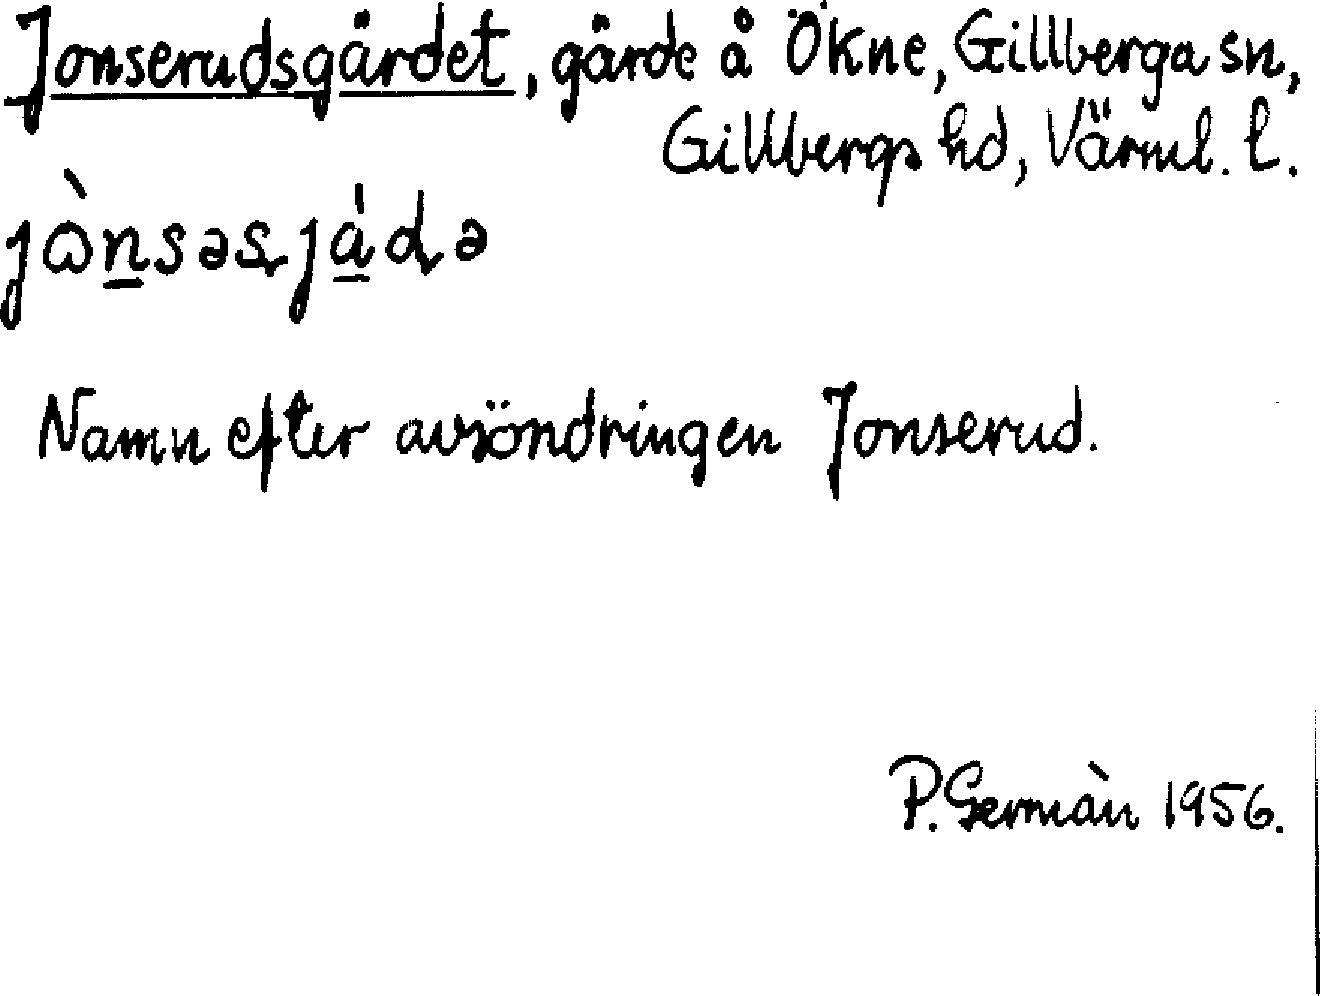 Jonserudsgärdet, gärde å Ökne, Gillberga sn,
Gillbergs hd, Värml. l.
Namn efter avsöndringen Jonserud.
P. Germàn 1956.